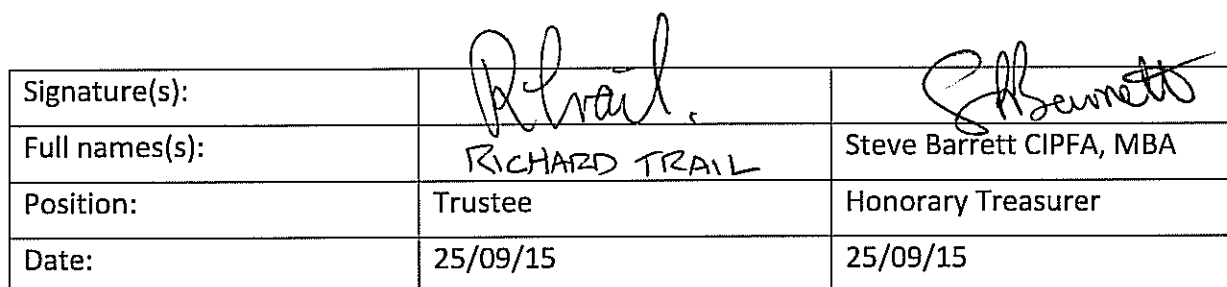 Signature(s): R Trail. SABarrett
Full names(s): RICHARD TRAIL Steve Barrett CIPFA, MBA
Position: Trustee Honorary Treasurer
Date: 25/09/15 25/09/15